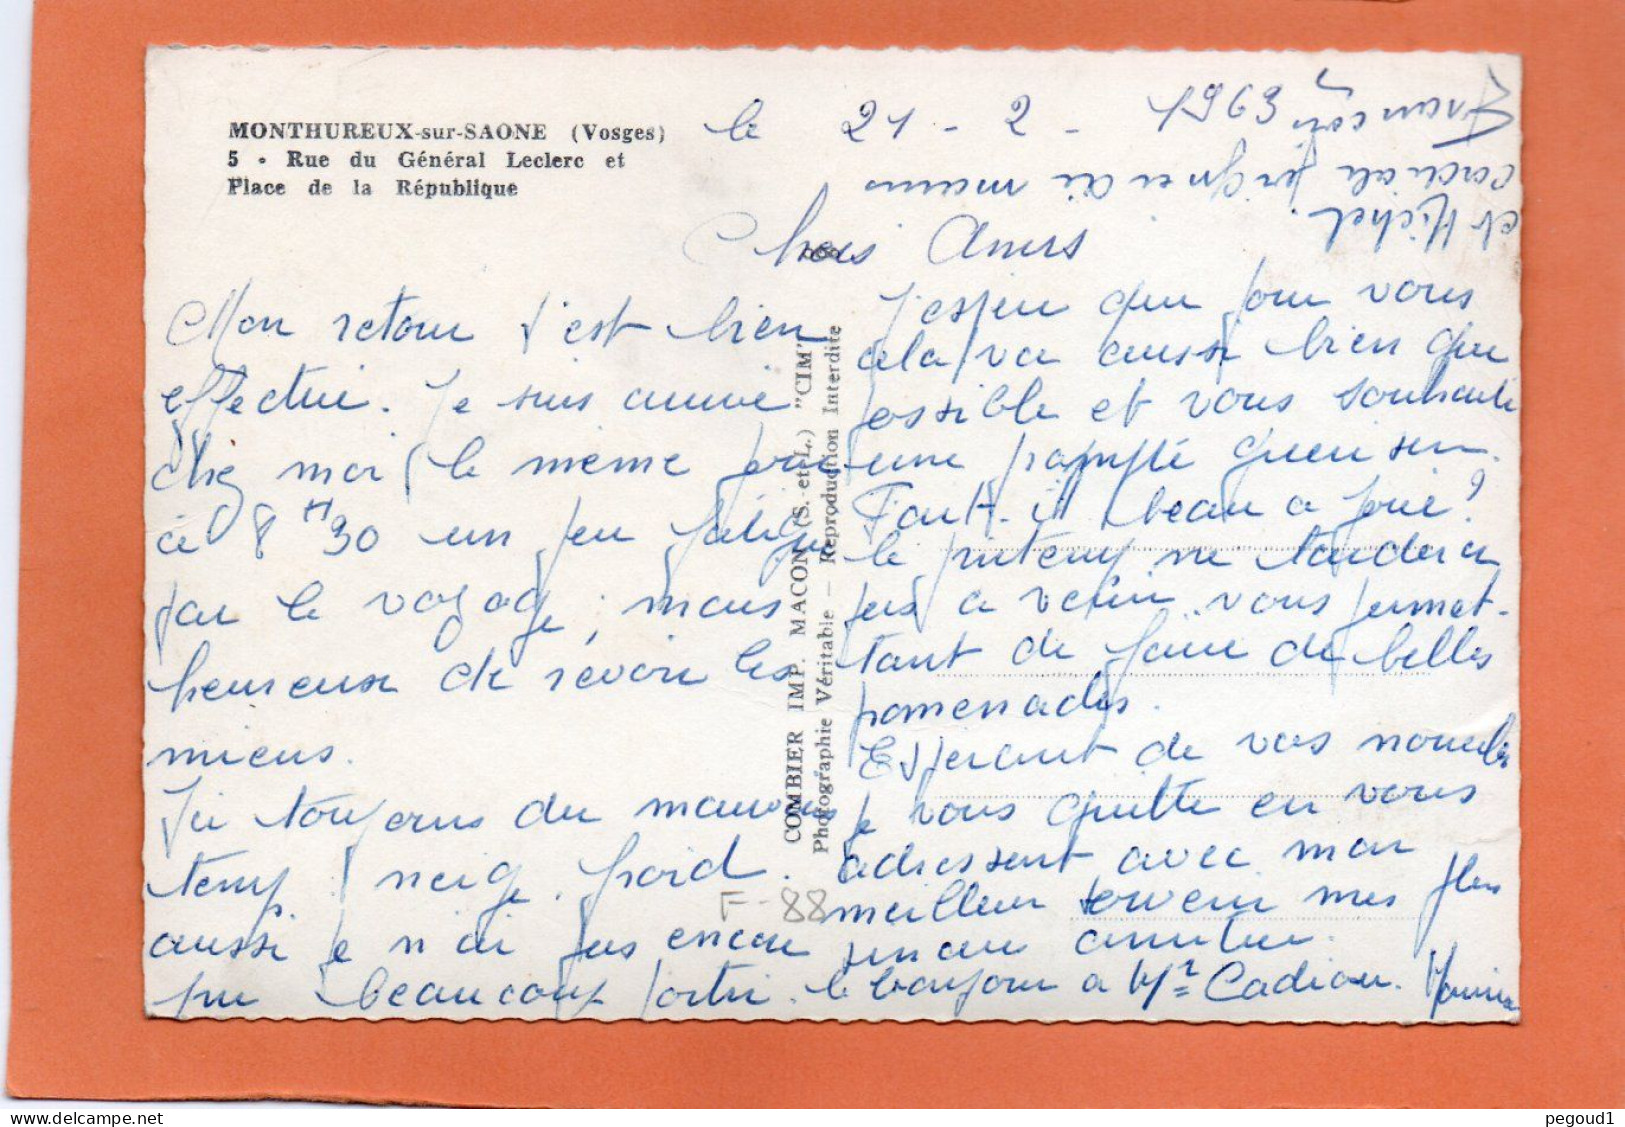 MONTHUREUX-sur-SAONE (Vosges)
5 - Rue du Général Leclerc et
Place de la République
le 21-2-1963
Chers Amis
Mon retour s'est bien
effectué. Je suis arrivé
chez moi le même jour
à 8 H 30 un peu fatigué
par le voyage, mais
heureux de revoir les
miens.
J'ai toujours du mauvais
temps neige, froid.
aussi je n'ai pas encore
pu beaucoup sortir.
J'espère que pour vous
cela va aussi bien que
possible et vous souhaite
une prompte guérison.
Fait-il beau a joué?
le printemps ne tardera
pas a venir vous permet-
tant de faire de belles
promenades.
Espérant de vos nouvelles
je vous quitte en vous
adressant avec mon
meilleur souvenir mes plus
sincère amitier.
le bonjour a Mr Cadiou.
cordiale poignei di mains
et Michel.
COMBIER IMP. MACON (S.-et-L.) "CIM"
Photographie Véritable - Reproduction Interdite
F-88
pegoud1
www.delcampe.net